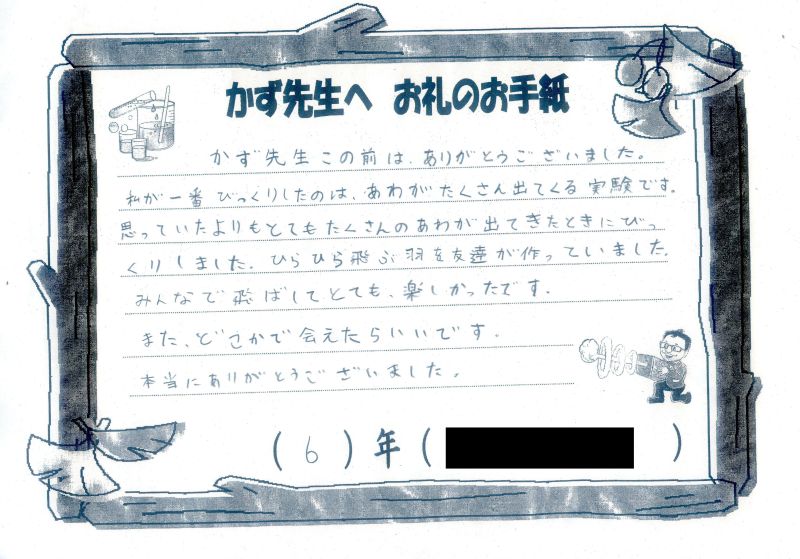 かず先生へ お礼のお手紙
かず先生この前は、ありがとうございました。
私が一番びっくりしたのは、あわがたくさん出てくる実験です。
思っていたよりもとてもたくさんのあわが出てきたときにびっ
くりしました。ひらひら飛ぶ羽を友達が作っていました。
みんなで飛ばしてとても、楽しかったです。
また、どこかで会えたらいいです。
本当にありがとうございました。
(6)年( )